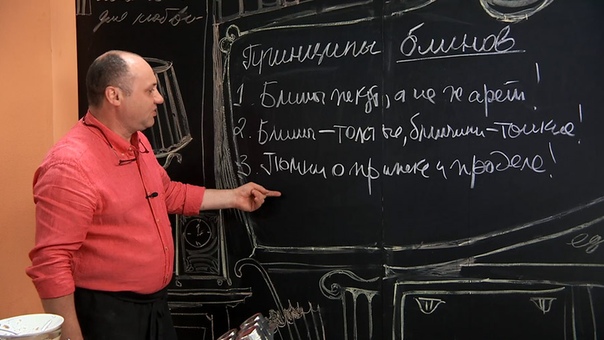 для любви
Принципы блинов
1. Блины пекут, а не жарят!
2. Блины – толстые, блинчики – тонкие!
3. Помни о припёке и
ед